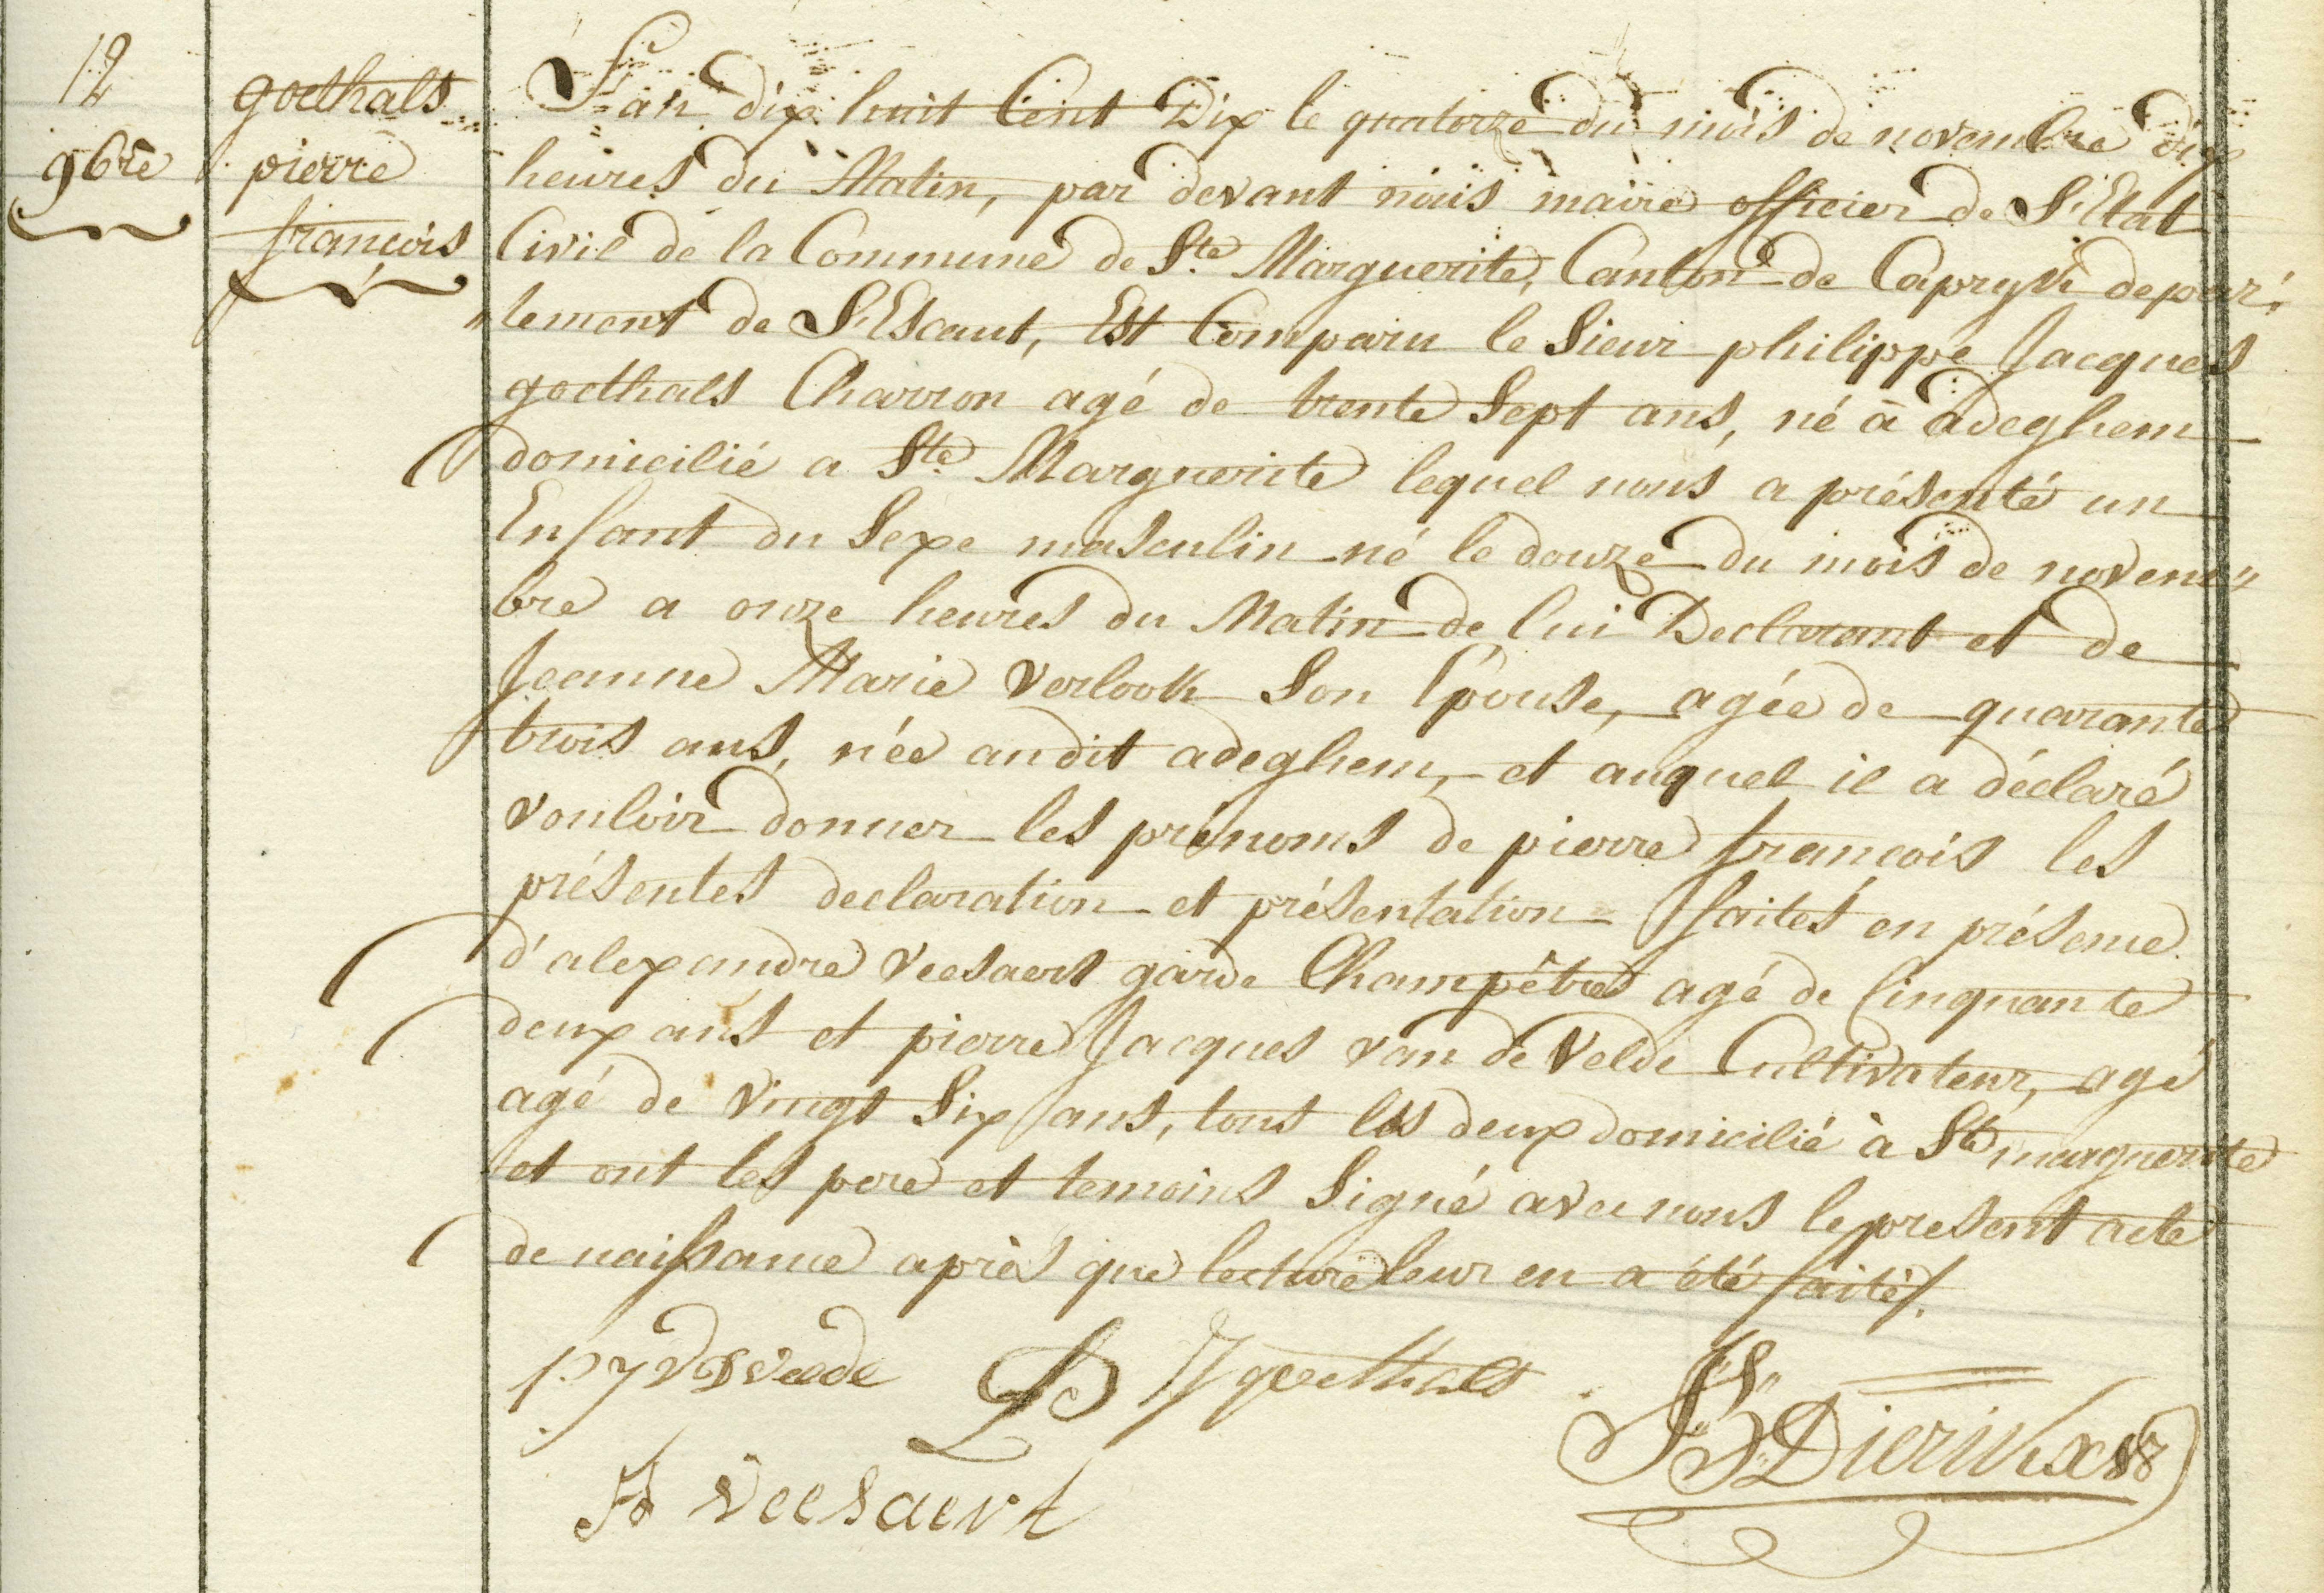 12
9bre
goethals
pierre
françois
L'an dix huit Cent Dix le quatorze du mois de novembre dix
heures du Matin, par devant nous maire officier de L'Etat
Civil de la Commune de Ste Marguerite, Canton de Capryk depar:
"tement de L'Escaut, Est Comparu le Sieur philippe Jacques
goethals Charron agé de trente Sept ans, né à adeghem
domicilié a Ste Marguerite lequel nous a présenté un
Enfant du Sexe masculin né le douze du mois de novem"
bre a onze heures du Matin de lui Declarant et de
Jeanne Marie Verlook Son Epouse, agée de quarante
trois ans, née audit adeghem, et auquel il a déclaré
vouloir donner les prénoms de pierre françois les
présentes declaration et présentation faites en présence
d'alexandre Veesaert garde Champêtre agé de Cinquante
deux ans et pierre Jacques van de Velde Cultivateur, agé
agé de Vingt Six ans, tous les deux domicilié à Ste marguerite
et ont les pere et temoins Signé avec nous le present acte
de naissance après que lecture leur en a été faite.
goethals
A Veesaert